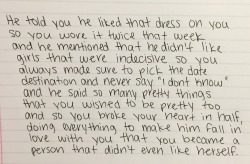 He told you he liked that dress on you
so you wore it twice that week
and he mentioned that he didn't like
girls that were indecisive so you
always made sure to pick the date
destination and never say "I don't know"
and he said so many pretty things
that you wished to be pretty too
and so you broke your heart in half,
doing everything to make him fall in
love with you that you became a
person that didn't even like herself.